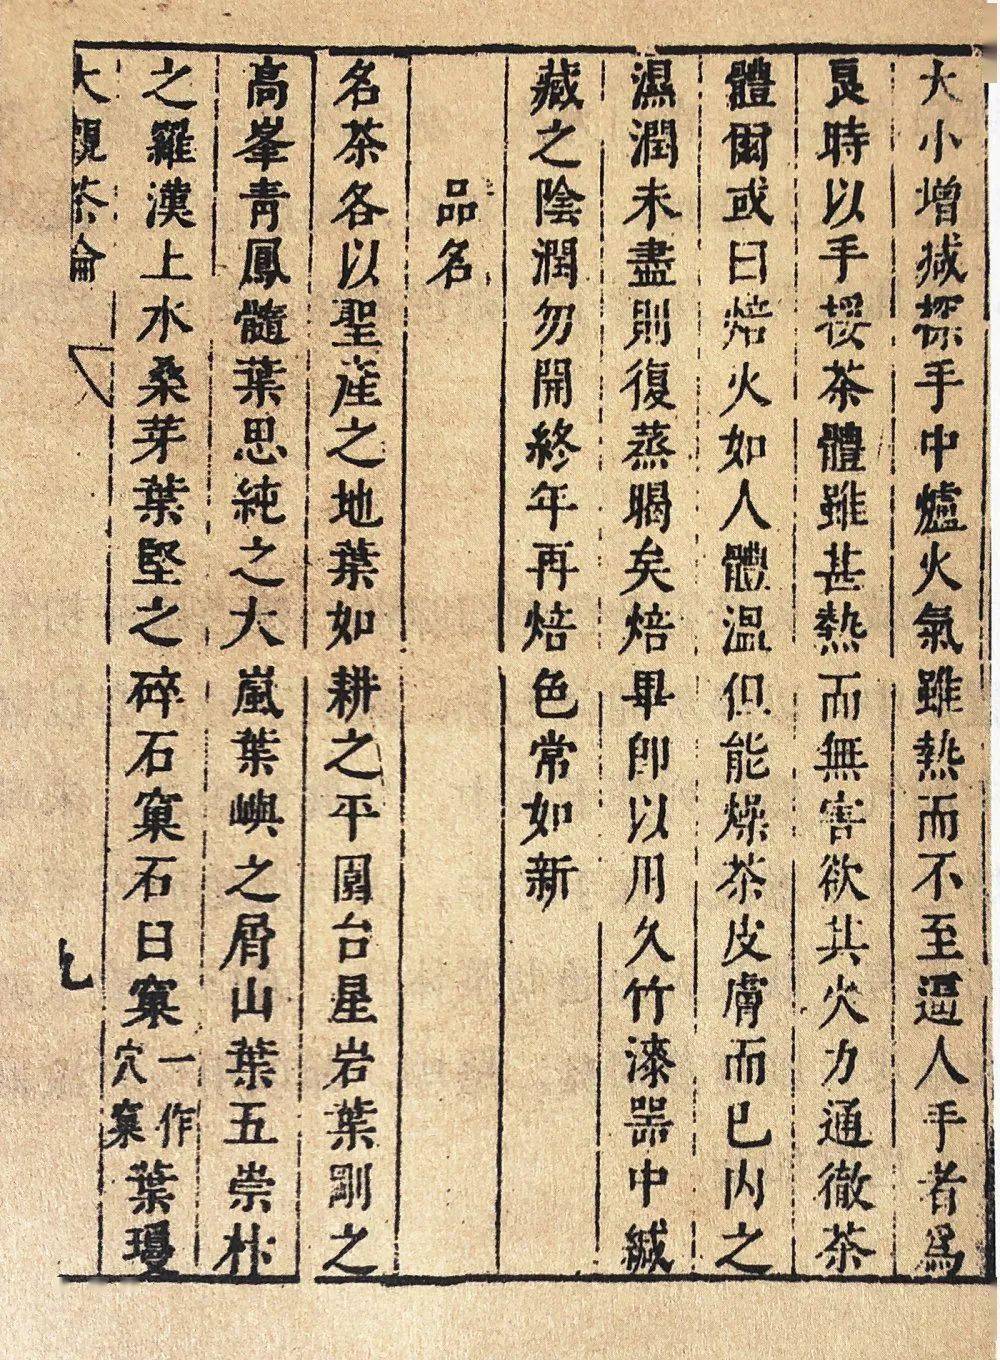 大小增减探手中爐火氣雖熱而不至逼人手者爲
良時以手挼茶體雖甚熱而無害欲其火力通徹茶
體爾或曰焙火如人體温但能燥茶皮膚而已内之
濕潤未盡則復蒸暍矣焙畢即以用久竹漆器中緘
藏之陰潤勿開終年再焙色常如新
品名
名茶各以聖産之地葉如耕之平園台星岩葉剛之
高峯青鳳髓葉思純之大嵐葉嶼之屑山葉五崇柞
之羅漢上水桑芽葉堅之碎石窠石臼窠一作穴窠葉瓊
大觀茶論
七